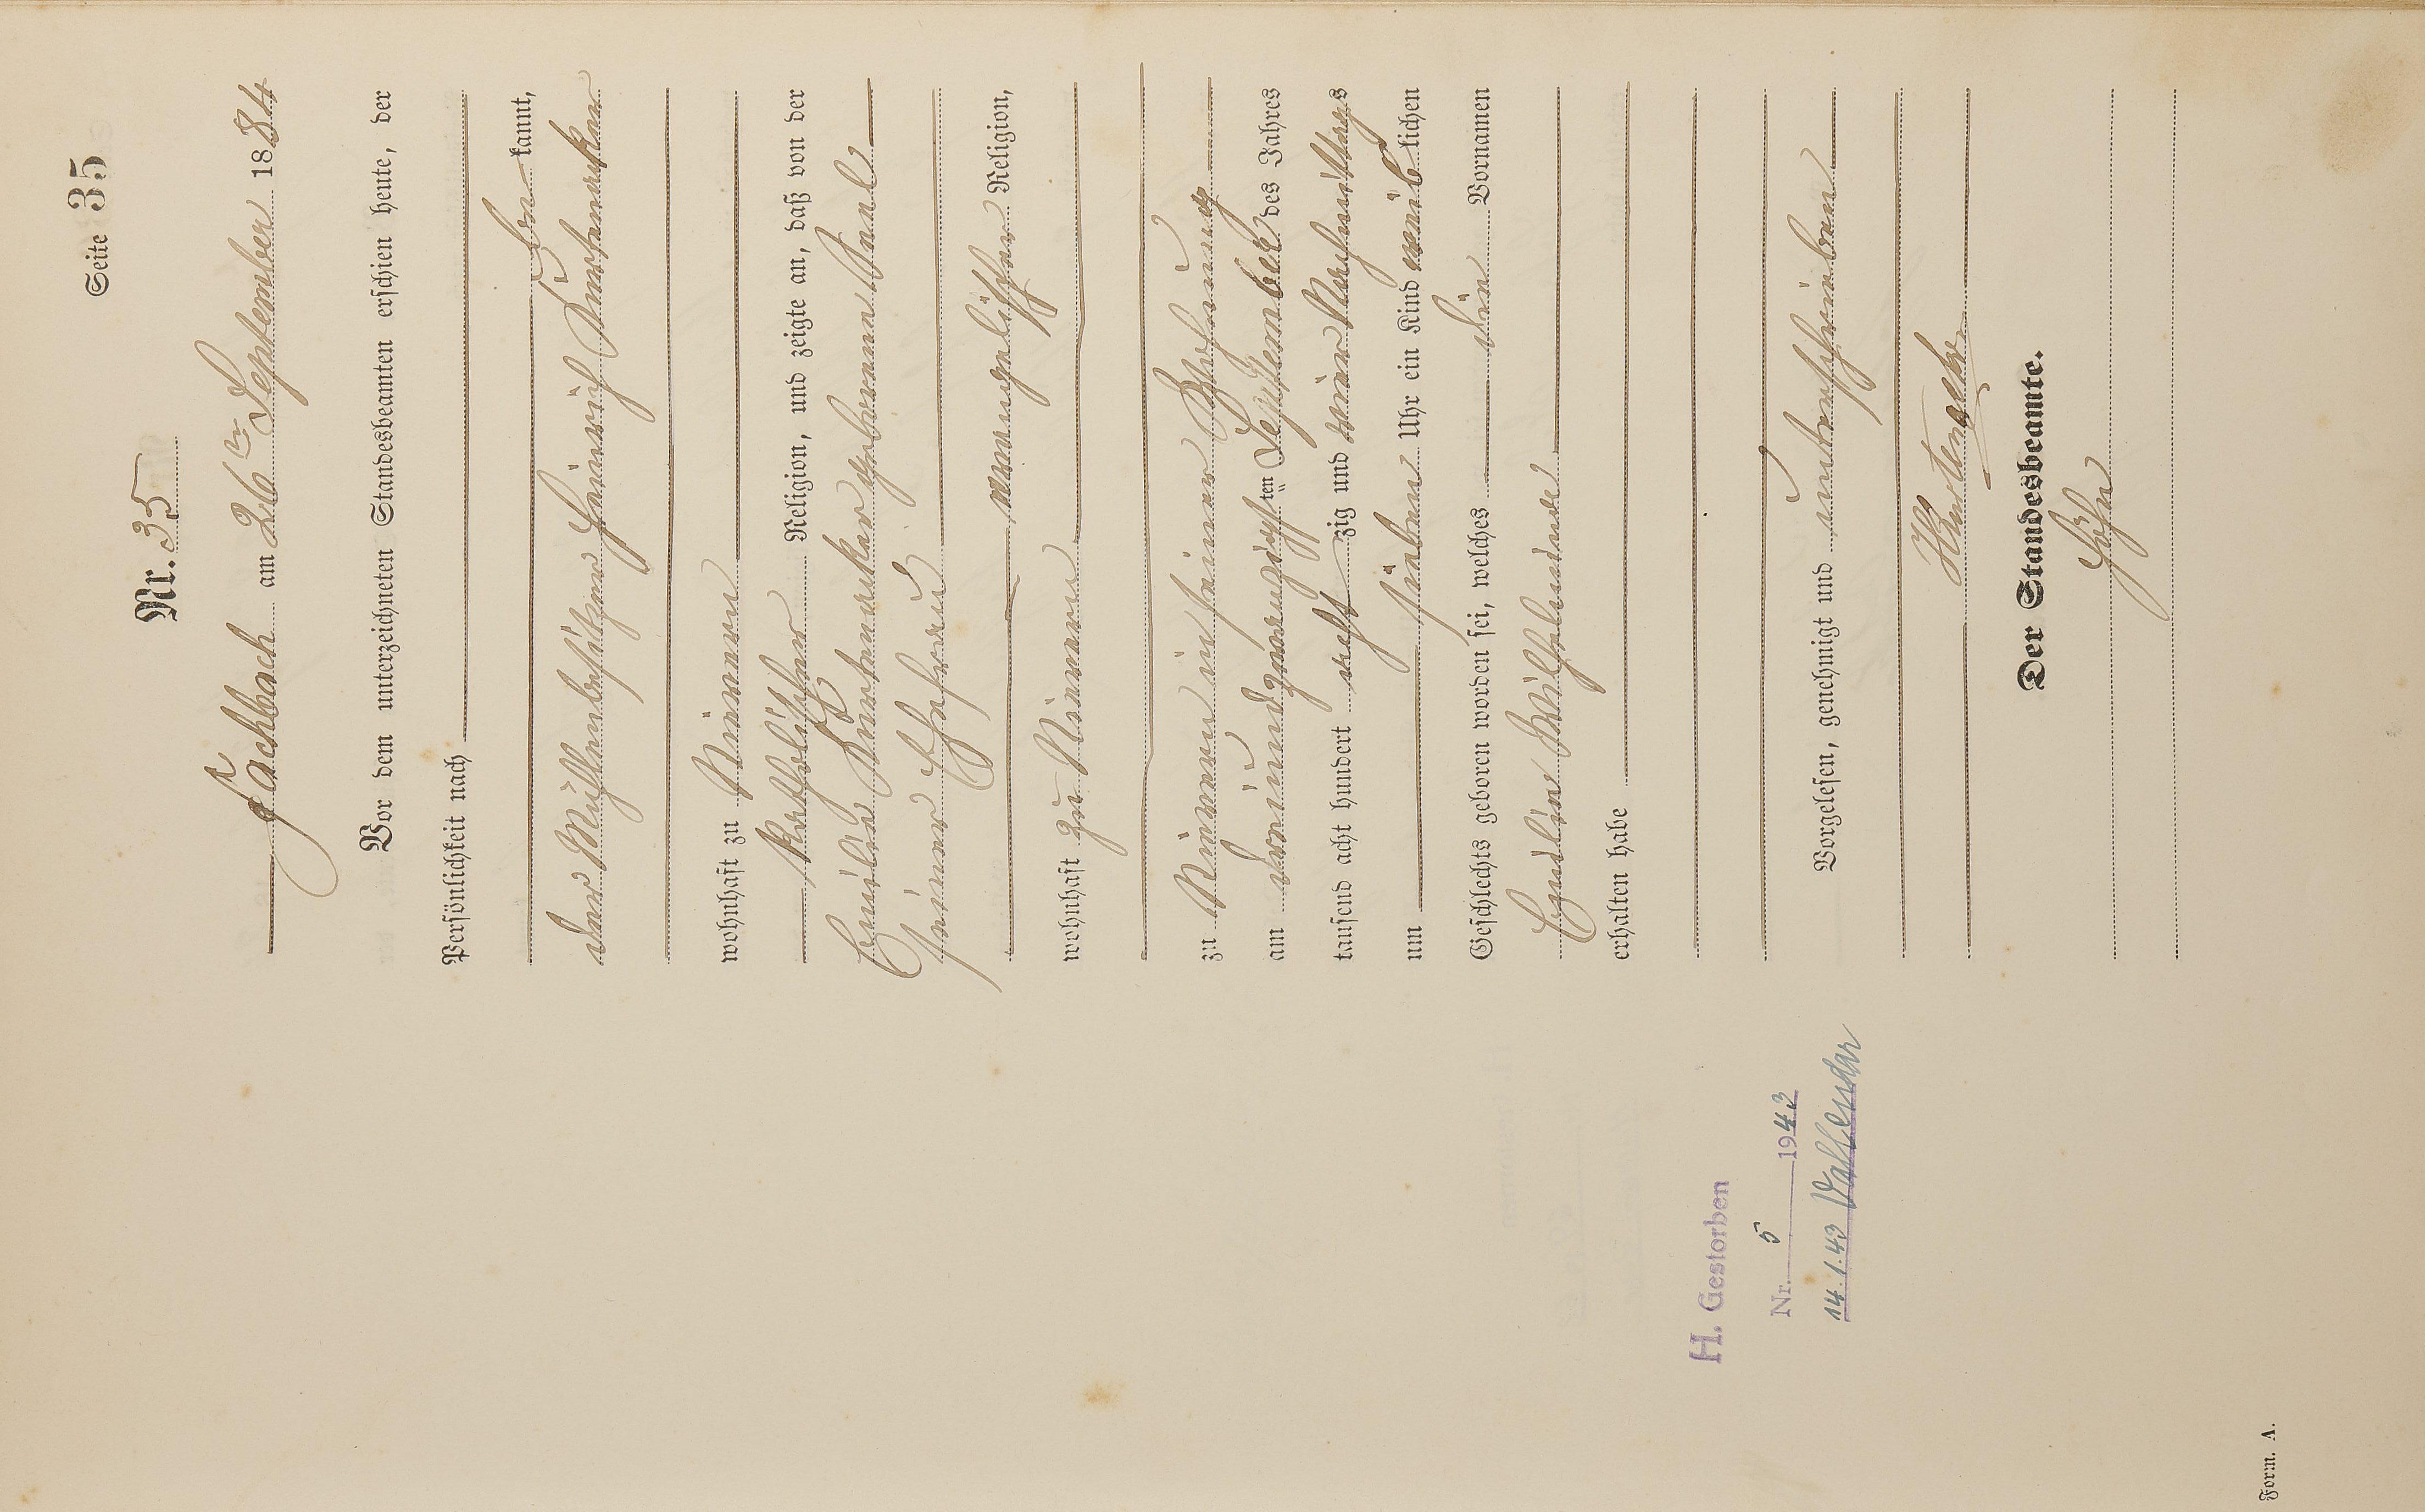 Seite 35
Nr. 35
Fachbach am 26ten September 1884
Vor dem unterzeichneten Standesbeamten erschien heute, der
Persönlichkeit nach
be kannt,
der Mühlenbesitzer Heinrich
wohnhaft zu Nievern
katholischer Religion, und zeigte an, daß von der
Emilie geborene Paul
seiner Ehefrau
evangelischer Religion,
wohnhaft zu Nievern
zu Nievern in seiner Wohnung
am dreiundzwanzigsten September des Jahres
tausend acht hundert acht zig und vier Nachmittags
um sieben Uhr ein Kind weiblichen
Geschlechts geboren worden sei, welches die Vornamen
Emilie Wilhelmine
erhalten habe
Vorgelesen, genehmigt und unterschrieben
Der Standesbeamte.
Höhn
H. Gestorben
Nr. 5 1943
14.1.43 Vallendar
Form. A.